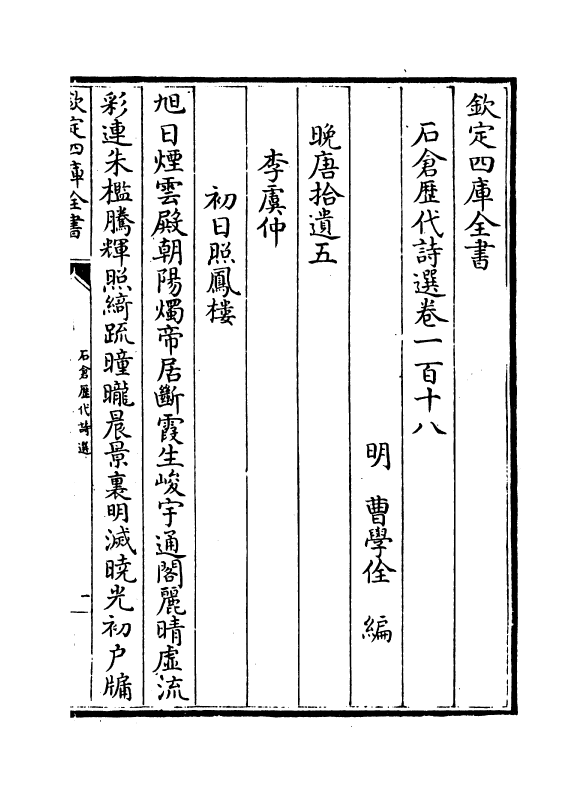 欽定四庫全書
石倉歷代詩選卷一百十八
明　曹學佺　編
晚唐拾遺五
李虞仲
初日照鳳樓
旭日煙雲殿朝陽燭帝居斷霞生峻宇通閣麗晴虛流
彩連朱檻騰輝照綺疏曈曨晨景裏明滅曉光初户牖
欽定四庫全書
石倉歷代詩選